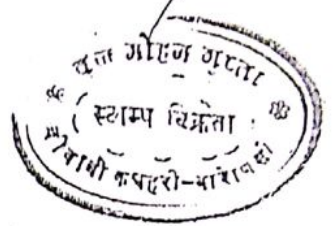 गुप्ता
स्टाम्प विक्रेता
दीवानी कचहरी-वाराणसी